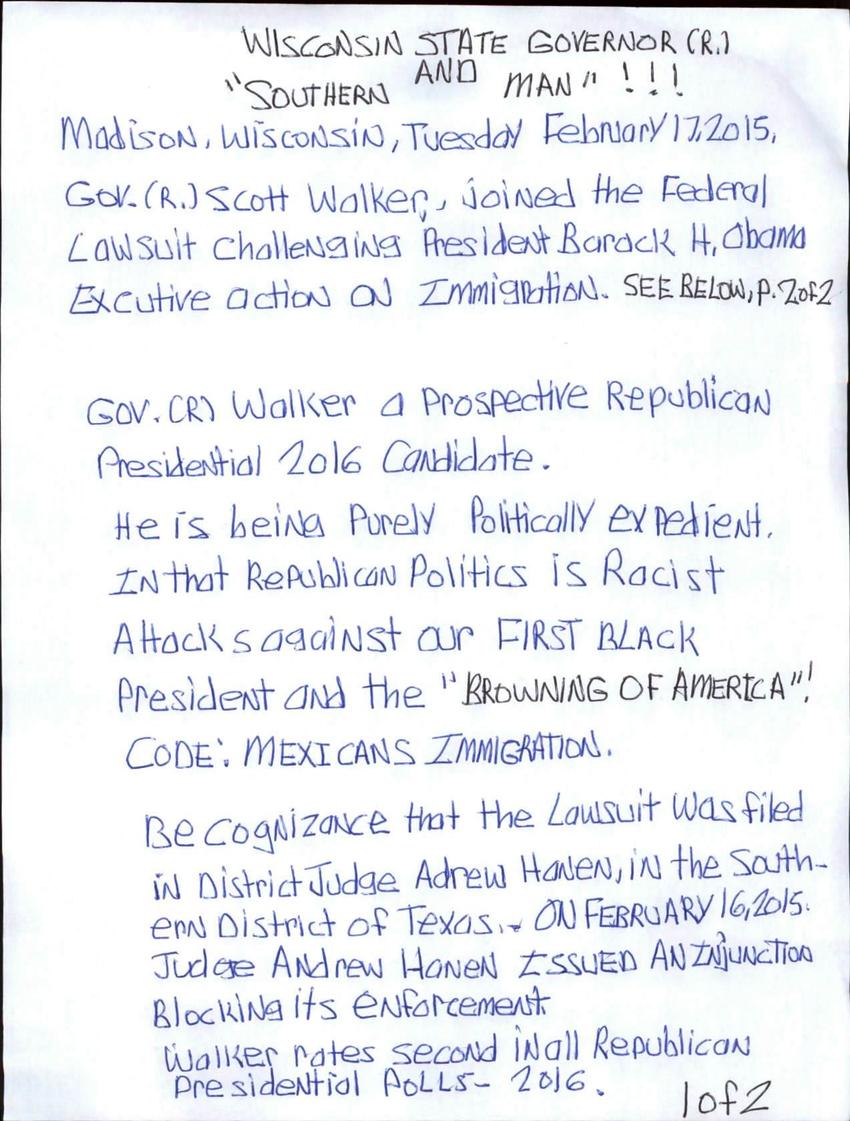 WISCONSIN STATE GOVERNOR (R.)
AND
"SOUTHERN MAN" !!!
Madison, Wisconsin, Tuesday February 17, 2015.
Gov. (R.) Scott Walker, joined the Federal
Lawsuit challenging President Barack H. Obama
Excutive action on Immigration. SEE BELOW, P. 2of2
Gov. (R) Walker a Prospective Republican
Presidential 2016 Candidate.
He is being Purely Politically expedient.
IN that Republican Politics is Racist
Attacks against our FIRST BLACK
President and the "BROWNING OF AMERICA"!
CODE: MEXICANS IMMIGRATION.
Be Cognizance that the Lawsuit was filed
in District Judge Adrew Hanen, in the South-
ern District of Texas. ON FEBRUARY 16, 2015.
Judge Andrew Hanen ISSUED AN INJUNCTION
Blocking its enforcement
Walker rates second in all Republican
Presidential POLLS- 2016.
1of2